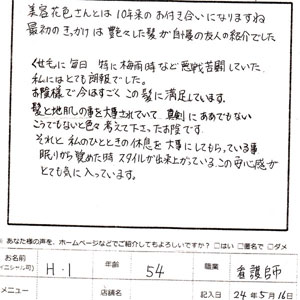 美容花色さんとは10年来のお付き合いになりますね
最初のきっかけは艶々した髪が自慢の友人の紹介でした
くせ毛に毎日 特に梅雨時など悪戦苦闘していた
私にはとても朗報でした。
お陰様で今はすごくこの髪に満足しています。
髪と地肌の事を大事されていて 真剣に ああでもない
こうでもないと色々考えて下さったお陰です。
それと 私のひとときの休息を大事にしてもらっている事
眠りから覚めた時 スタイルが出来上がっている、この安心感が
とても気に入っています。
※ あなた様の声を、ホームページなどでご紹介してもよろしいですか? □はい □匿名で □ダメ
お名前 H・I 年齢 54 職業 看護師
ニシャル可)
メニュー 店舗名 記入日 24年5月16日